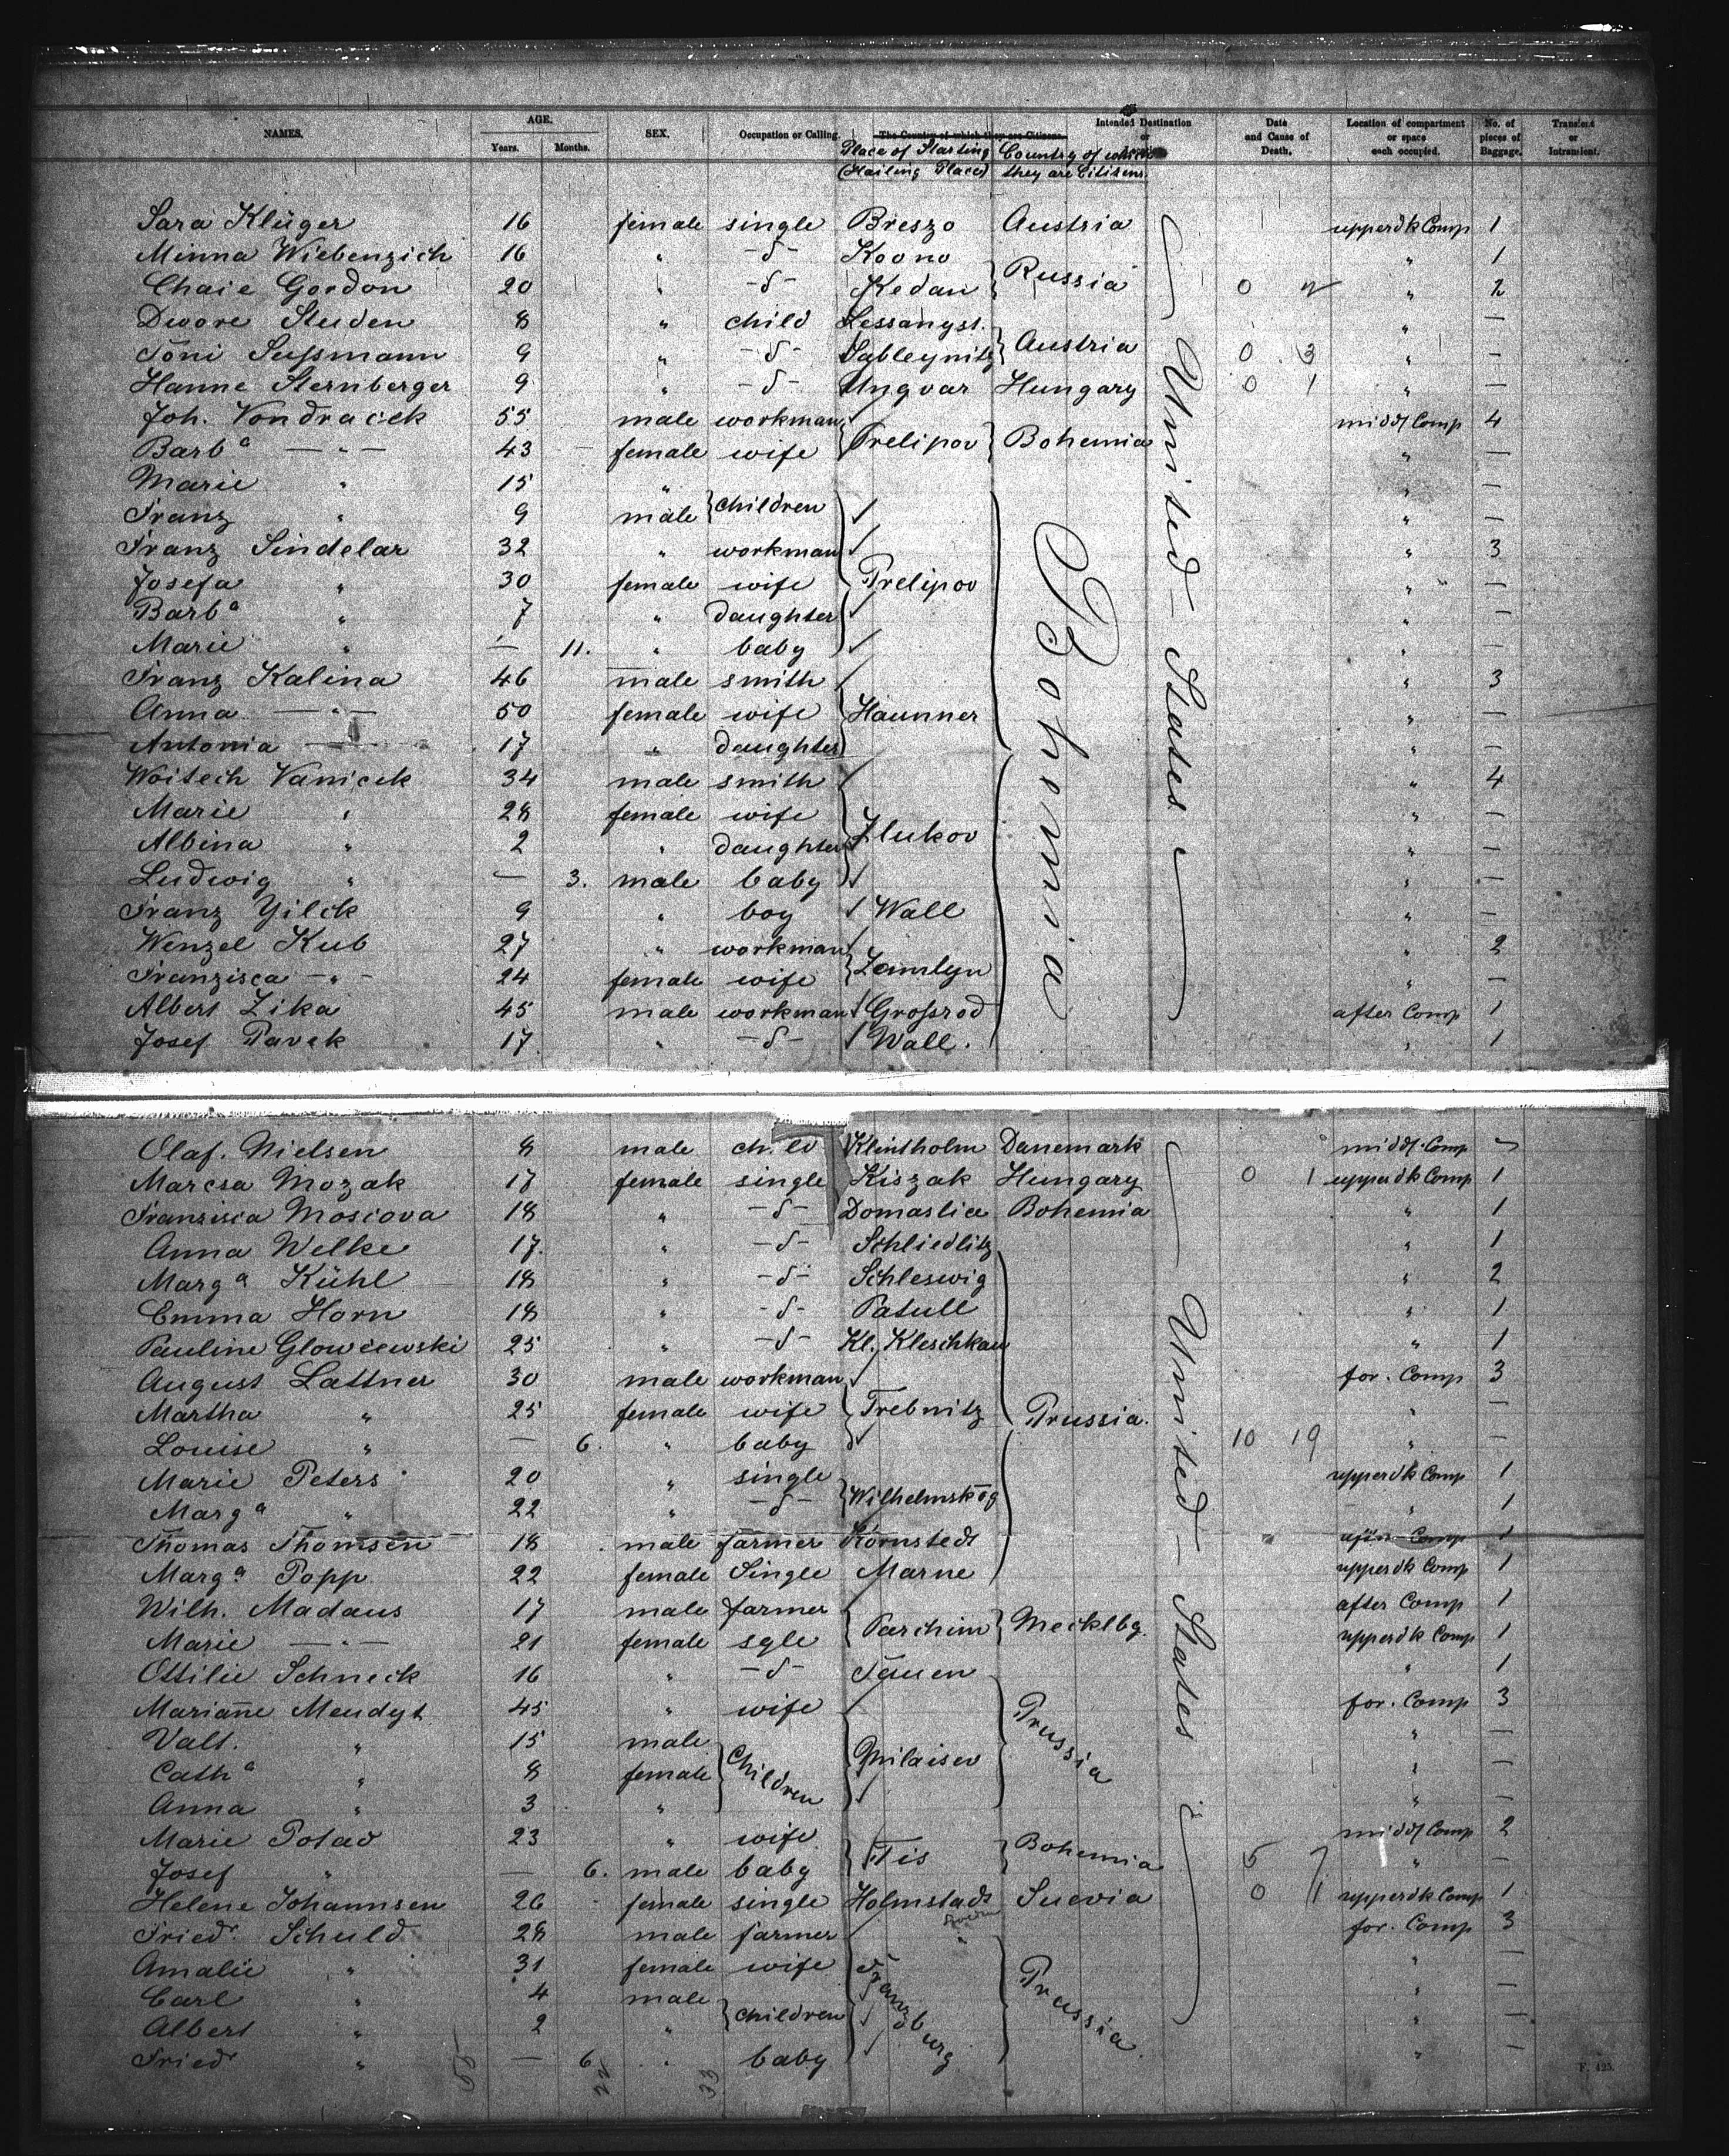 NAMES. AGE. SEX. Occupation or Calling. The Country of which they are Citizens. Intended Destination or Date and Cause of Death. Location of compartment or space each occupied. No. of pieces of Baggage. Transient or Intransient.
Years. Months. Place of Starting (Hailing Place) Country of which they are Citizens.
Sara Klüger 16 female single Breszo Austria upperdk Comp 1
Minna Wiebenzich 16 " -d- Kovno " 1
Chaie Gordon 20 " -d- Kedan Russia 0 " 2
Dwore Studen 8 " child Lessangst. " —
Töni Sussmann 9 " -d- Austria 0 3 " —
Hanne Sternberger 9 " -d- Ungvar Hungary 0 1 " —
Joh. Vondracek 55 male workman middl Comp 4
Barbª — " — 43 female wife Prelipov Bohemia " —
Marie " 15 " " —
Franz " 9 male children " —
Franz Sindelar 32 " workman " 3
Josefa " 30 female wife Prelipov " —
Barbª " 7 " daughter " —
Marie " — 11. " baby " —
Franz Kalina 46 male smith " 3
Anna — " — 50 female wife Haunner " —
Antonia — " — 17 " daughter " —
Woitech Vanicek 34 male smith " 4
Marie " 28 female wife " —
Albina " 2 " daughter Zlukov " —
Ludwig " — 3. male baby " —
Franz Yilek 9 " boy Wall " —
Wenzel Kub 27 " workman " 2
Franzisca — " — 24 female wife Zamlyn " —
Albert Zika 45 male workman Grossrod after Comp 1
Josef Pavek 17 " -d- Wall. " 1
Bohemia
United-States
Olaf. Nielsen 8 male child Klintholm Danemark middl. Comp —
Marcsa Mozak 17 female single Kiszak Hungary 0 1 upperdk Comp 1
Franzisca Moscova 18 " -d- Domaslice Bohemia " 1
Anna Welke 17. " -d- Schliedlitz " 1
Margª Kühl 18 " -d- Schleswig " 2
Emma Horn 18 " -d- Patull " 1
Pauline Glowcewski 25 " -d- Kl. Kleschkau " 1
August Lattner 30 male workman for. Comp 3
Martha " 25 female wife Trebnitz Prussia. " —
Louise " — 6. " baby 10 19 " —
Marie Peters 20 " single upperdk Comp 1
Margª " 22 " -d- Wilhelmskog " 1
Thomas Thomsen 18 male farmer Kornstedt after Comp 1
Margª Popp 22 female Single Marne upperdk Comp 1
Wilh. Madaus 17 male farmer after Comp 1
Marie — " — 21 female sgle Parchim Mecklbg. upperdk Comp 1
Ottilie Schneck 16 " -d- Tauen " 1
Marianne Mendyt 45 " wife for. Comp 3
Valt. " 15 male " —
Cathª " 8 female Children Milaisev Prussia " —
Anna " 3 " " —
Marie Potad 23 " wife middl Comp 2
Josef " — 6. male baby Tis Bohemia 5 7 " —
Helene Johannsen 26 female single Holmstadt Suevia 0 1 upperdk Comp 1
Sweden
Friedr. Schuld 28 male farmer for. Comp 3
Amalie " 31 female wife " —
Carl " 4 male Franzburg Prussia. " —
Albert " 2 " children " —
Friedr " — 6 " baby " —
United-States
55 22 33
F. 425.